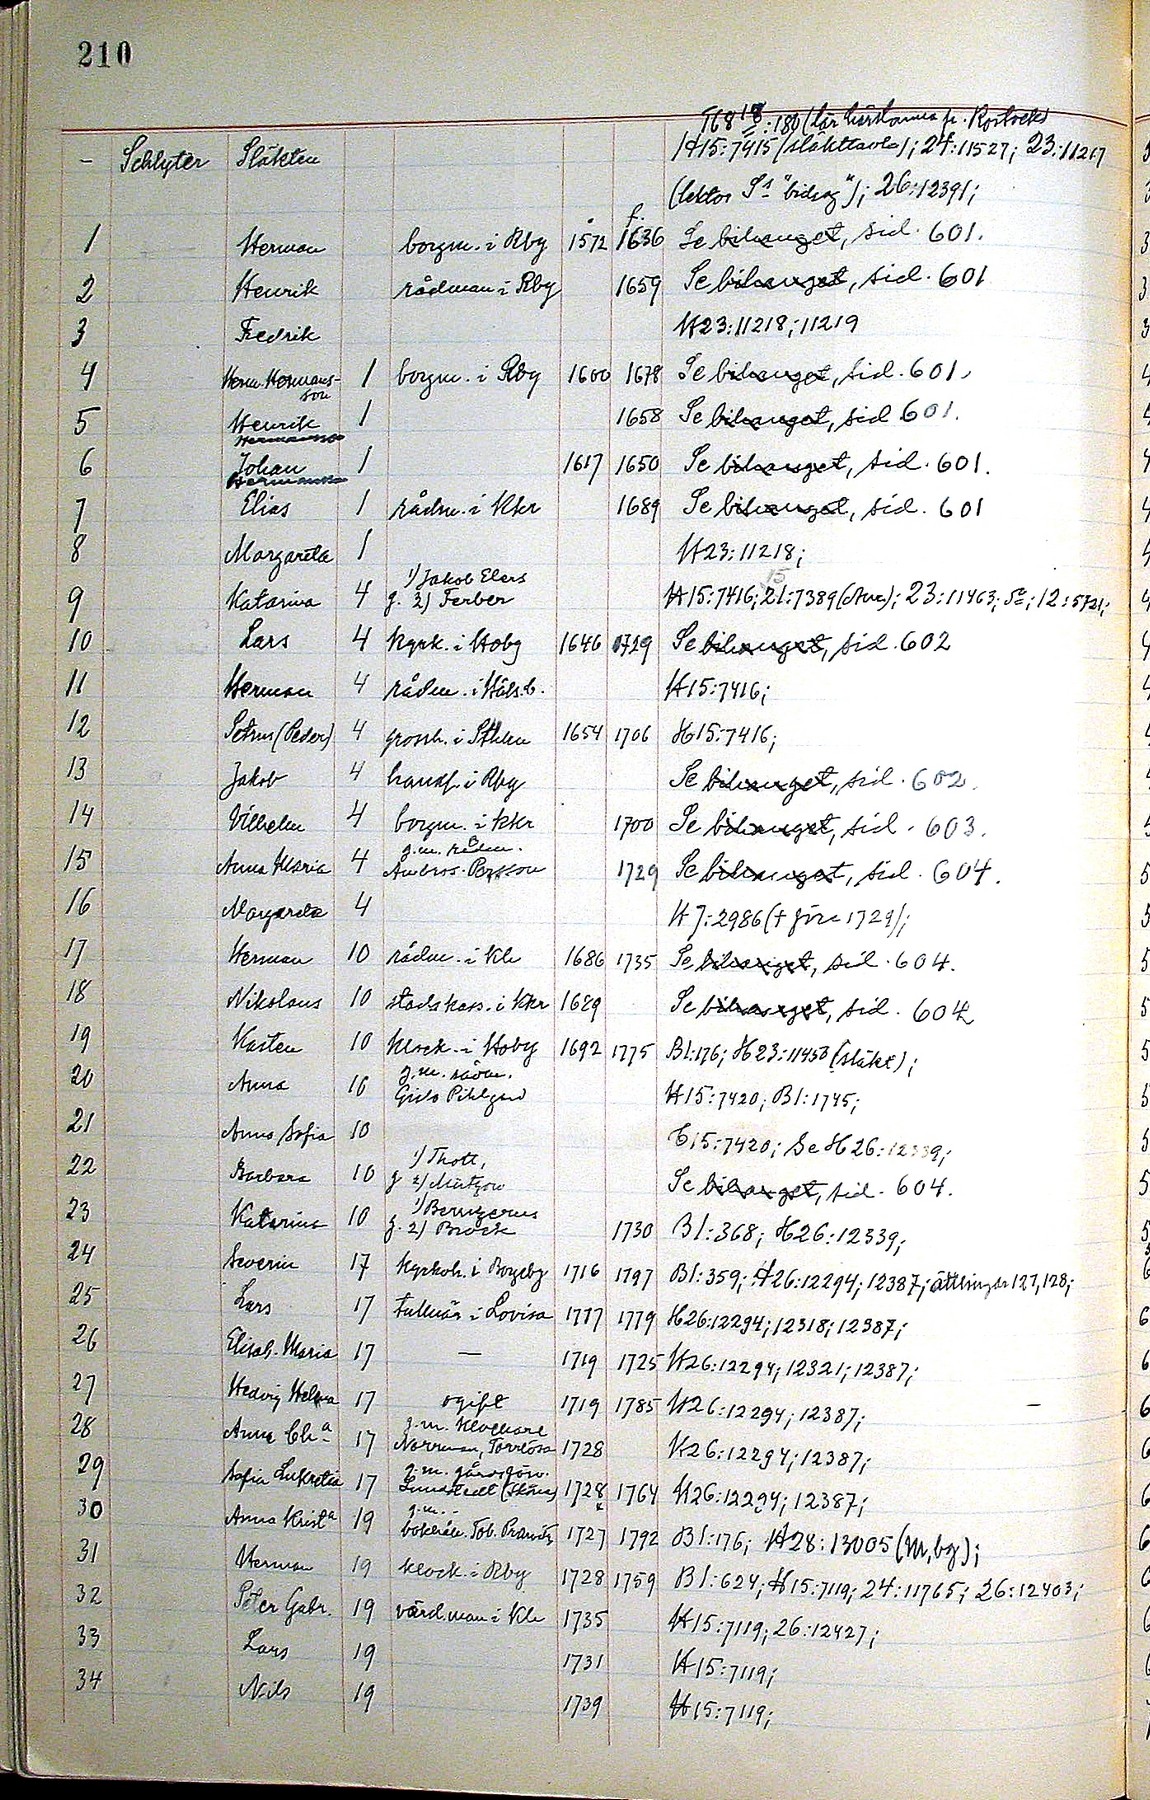 210
T68 18:180 (lär härstamma fr. Rostock)
- Schlyter Släkten H15:7415 (släkttavla); 24:11527; 23:11217
(lektor S:s "bidrag"); 26:12391;
1 Herman borgm. i Rby 1572 f. 1636 Se bihanget, sid. 601.
2 Henrik rådman i Rby 1659 Se bihanget, sid. 601
3 Fredrik H23:11218; 11219
4 Herm. Hermans-son 1 borgm. i Rby 1600 1678 Se bihanget, sid. 601.
5 Henrik Hermansson 1 1658 Se bihanget, sid 601.
6 Johan Hermansson 1 1617 1650 Se bihanget, sid. 601.
7 Elias 1 rådm. i Kkr 1689 Se bihanget, sid. 601
8 Margareta 1 H23:11218;
9 Katarina 4 g. 1) Jakob Elers 2) Ferber H15:7416; 21:7389 (Ana); 23:11463; 12:5721;
10 Lars 4 kyrk. i Hoby 1646 1729 Se bihanget, sid. 602
11 Herman 4 rådm. i Häls.b. H15:7416;
12 Petrus (Peder) 4 grossh. i Sthlm 1654 1706 H15:7416;
13 Jakob 4 handl. i Rby Se bihanget, sid. 602.
14 Vilhelm 4 borgm. i Kkr 1700 Se bihanget, sid. 603.
15 Anna Maria 4 g.m. rådm. Ambros. Persson 1729 Se bihanget, sid. 604.
16 Margareta 4 H7:2986 († före 1729);
17 Herman 10 rådm. i Kh 1686 1735 Se bihanget, sid. 604.
18 Nikolaus 10 stadskass. i Kkr 1689 Se bihanget, sid. 604
19 Kasten 10 klock. i Hoby 1692 1775 B1:176; H23:11453 (släkt);
20 Anna 10 g.m. rådm. Gislo Pihlgren H15:7420; B1:1745;
21 Anna Sofia 10 H15:7420; Se H26:12339;
22 Barbara 10 g 1) Thott, 2) Mützow Se bihanget, sid. 604.
23 Katarina 10 g. 1) 2) Brock 1730 B1:368; H26:12339;
24 Severin 17 kyrkoh. i Borgeby 1716 1797 B1:359; H26:12294; 12387; ättlingar 127, 128;
25 Lars 17 tullnär i Lovisa 1717 1779 H26:12294; 12318; 12387;
26 Elisab. Maria 17 — 1719 1725 H26:12294; 12321; 12387;
27 Hedvig Helena 17 ogift 1719 1785 H26:12294; 12387;
28 Anna Ch:a 17 g.m. klockare Norrman, Torrlösa 1728 H26:12294; 12387;
29 Sofia Lukretia 17 g.m. gårdsförv. Lundstedt (Skåne) 1728 1764 H26:12294; 12387;
30 Anna Krist:a 19 g.m. Tob. 1727 1792 B1:176; H28:13005 (M, bg);
31 Herman 19 klock. i Rby 1728 1759 B1:624; H15:7119; 24:11765; 26:12403;
32 Peter Gabr. 19 vård.man i Kh 1735 H15:7119; 26:12427;
33 Lars 19 1731 H15:7119;
34 Nils 19 1739 H15:7119;